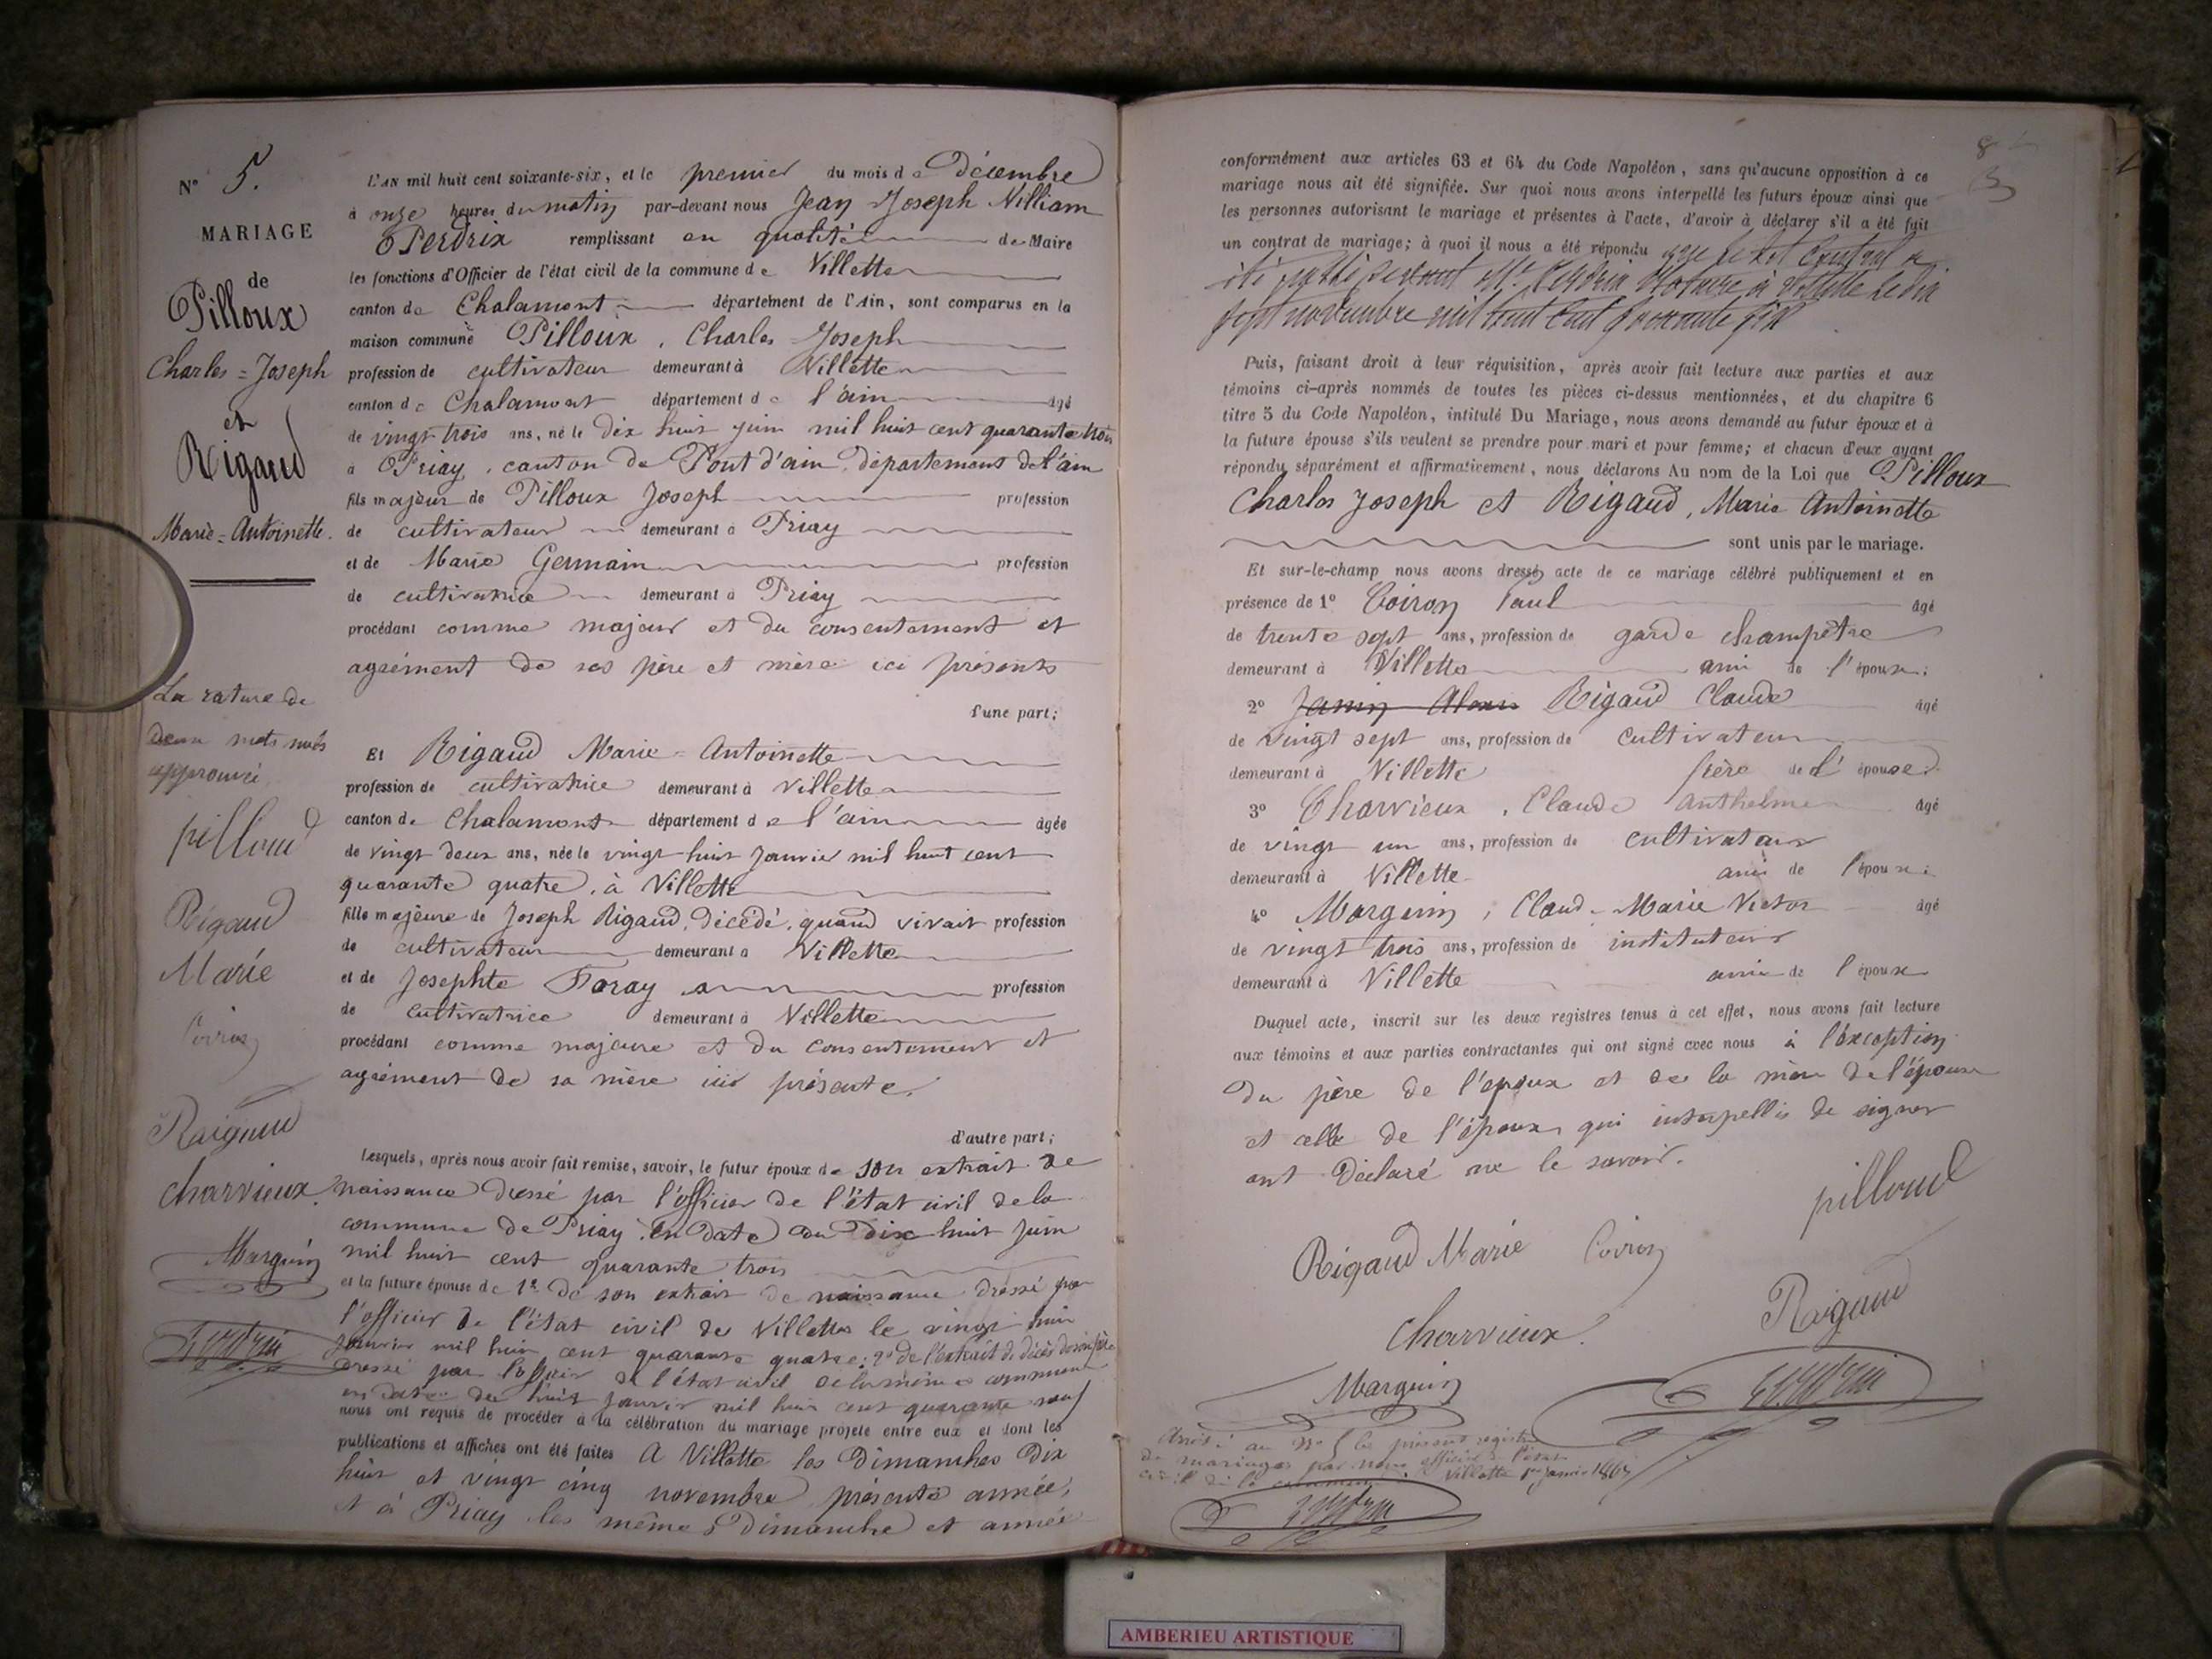 N° 5.
MARIAGE
de
Pilloux
Charles=Joseph
et
Rigaud
Marie=Antoinette.
La rature de
deux mots nuls
approuvée
pilloud
Rigaud
Marie
Coiron
Raigaud
Charvieux
Marguin
L'AN mil huit cent soixante-six, et le premier du mois de Décembre
à onze heures du matin par-devant nous Jean Joseph William
Perdrix remplissant en qualité de Maire
les fonctions d'Officier de l'état civil de la commune de Villette
canton de Chalamont département de l'Ain, sont comparus en la
maison commune Pilloux, Charles Joseph
profession de cultivateur demeurant à Villette
canton de Chalamont département de l'ain âgé
de vingt trois ans, né le dix huit juin mil huit cent quarante trois
à Priay, canton de Pont d'ain, département de l'ain
fils majeur de Pilloux Joseph profession
de cultivateur demeurant à Priay
et de Marie Germain profession
de cultivatrice demeurant à Priay
procédant comme majeur et du consentement et
agrément de ses père et mère ici présents
d'une part;
Et Rigaud Marie=Antoinette
profession de cultivatrice demeurant à Villette
canton de Chalamont département de l'ain âgée
de vingt deux ans, née le vingt huit Janvier mil huit cent
quarante quatre, à Villette
fille majeure de Joseph Rigaud, décédé, quand vivait profession
de cultivateur demeurant à Villette
et de Josephte Foray profession
de cultivatrice demeurant à Villette
procédant comme majeure et du consentement et
agrément de sa mère ici présente.
d'autre part;
Lesquels, après nous avoir fait remise, savoir, le futur époux de son extrait de
naissance dressé par l'officier de l'état civil de la
commune de Priay en date du dix huit Juin
mil huit cent quarante trois
et la future épouse de 1° de son extrait de naissance dressé par
l'officier de l'état civil de Villette le vingt huit
Janvier mil huit cent quarante quatre; 2° de l'extrait de décès de son père
dressé par l'officier de l'état civil de la même commune
en date du huit Janvier mil huit cent quarante neuf
nous ont requis de procéder à la célébration du mariage projeté entre eux et dont les
publications et affiches ont été faites A Villette les Dimanches Dix
huit et vingt cinq novembre présente année;
et à Priay les mêmes Dimanche et année
conformément aux articles 63 et 64 du Code Napoléon, sans qu'aucune opposition à ce
mariage nous ait été signifiée. Sur quoi nous avons interpellé les futurs époux ainsi que
les personnes autorisant le mariage et présentes à l'acte, d'avoir à déclarer s'il a été fait
un contrat de mariage; à quoi il nous a été répondu que le dit Contrat a
été passé devant Me Perdrix Notaire à Villette le dix
sept novembre mil huit cent soixante six
Puis, faisant droit à leur réquisition, après avoir fait lecture aux parties et aux
témoins ci-après nommés de toutes les pièces ci-dessus mentionnées, et du chapitre 6
titre 5 du Code Napoléon, intitulé Du Mariage, nous avons demandé au futur époux et à
la future épouse s'ils veulent se prendre pour mari et pour femme; et chacun d'eux ayant
répondu séparément et affirmativement, nous déclarons Au nom de la Loi que Pilloux
Charles Joseph et Rigaud, Marie Antoinette
sont unis par le mariage.
Et sur-le-champ nous avons dressé acte de ce mariage célébré publiquement et en
présence de 1° Coiron Paul âgé
de trente sept ans, profession de garde champêtre
demeurant à Villette ami de l'époux;
2° Janin Alexis Rigaud Claude âgé
de vingt sept ans, profession de cultivateur
demeurant à Villette frère de l'épouse;
3° Charvieux, Claude Anthelme âgé
de vingt un ans, profession de cultivateur
demeurant à Villette ami de l'époux;
4° Marguin, Claud-Marie Victor âgé
de vingt trois ans, profession de instituteur
demeurant à Villette ami de l'époux
Duquel acte, inscrit sur les deux registres tenus à cet effet, nous avons fait lecture
aux témoins et aux parties contractantes qui ont signé avec nous à l'exception
du père de l'époux et de la mère de l'épouse
et celle de l'époux qui interpellés de signer
ont déclaré ne le savoir.
pilloud
Rigaud Marie Coiron
Raigaud
Charvieux.
Marguin
Arrêté au N° 5 le présent registre
de mariages par nous officier de l'état
civil de la commune Villette 1er Janvier 1867
AMBERIEU ARTISTIQUE